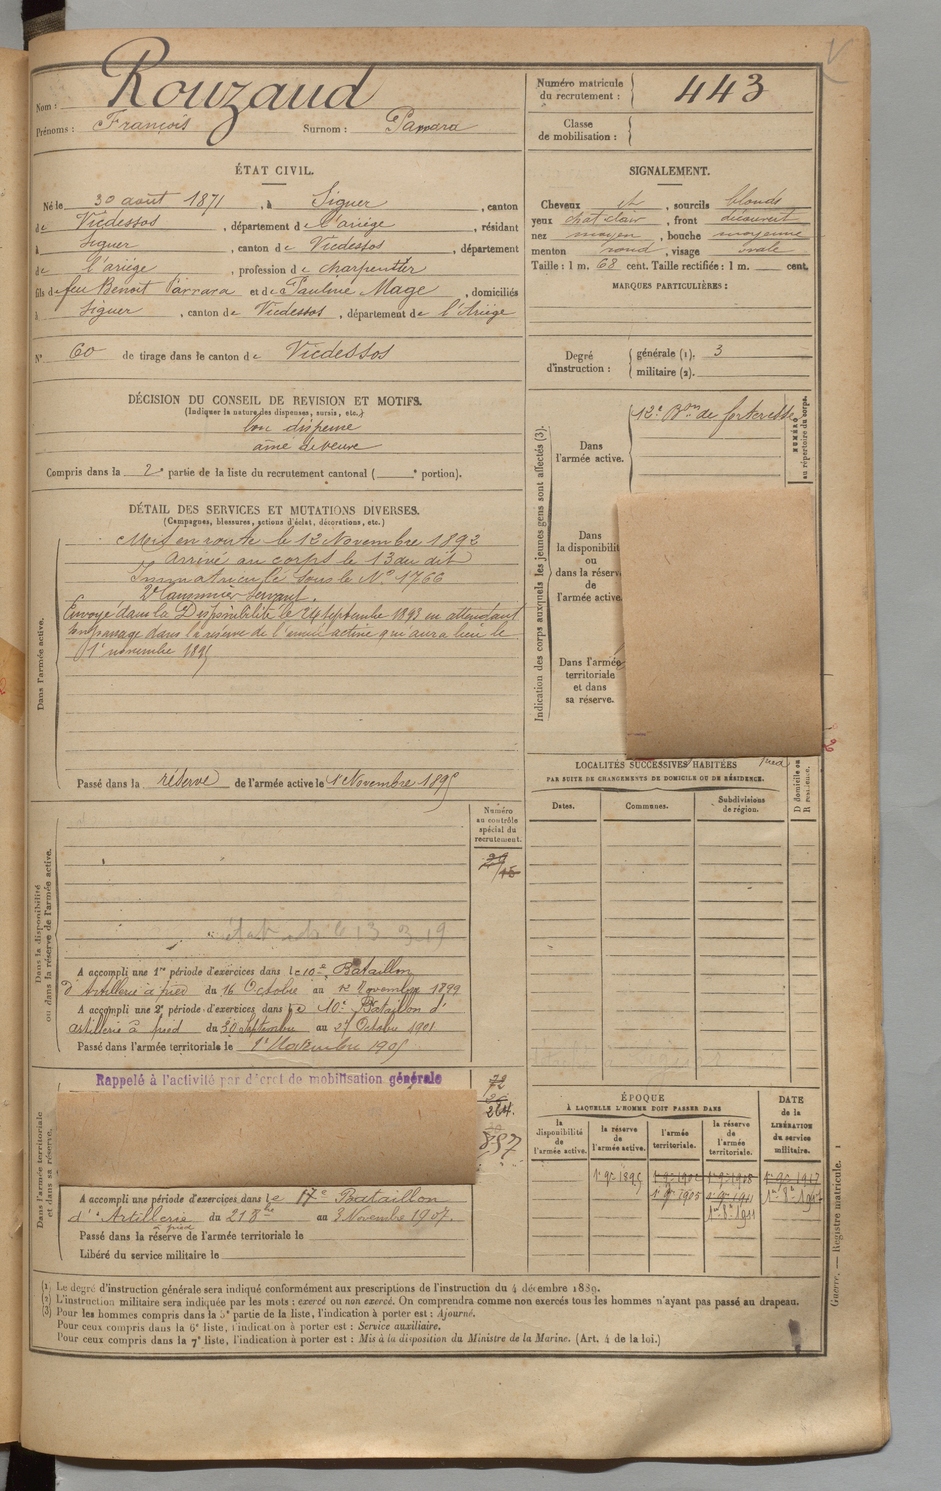 Nom : Rouzaud
Prénoms : François Surnom : Parrara
Numéro matricule du recrutement : 443
Classe de mobilisation :
ÉTAT CIVIL.
Né le 30 août 1871, à Siguer, canton
de Vicdessos, département de l'ariège, résidant
à Siguer, canton de Vicdessos, département
de l'ariège, profession de charpentier
fils de feu Benoit Parrara et de Pauline Mage, domiciliés
à Siguer, canton de Vicdessos, département de l'Ariège
N° 60 de tirage dans le canton de Vicdessos
SIGNALEMENT.
Cheveux et, sourcils blonds
yeux chat clair, front découvert
nez moyen, bouche moyenne
menton rond, visage ovale
Taille : 1 m. 68 cent. Taille rectifiée : 1 m. cent.
MARQUES PARTICULIÈRES :
Degré d'instruction : générale (1). 3
militaire (2).
DÉCISION DU CONSEIL DE REVISION ET MOTIFS.
(Indiquer la nature des dispenses, sursis, etc.)
bon dispensé
aîné de veuve
Compris dans la 2e partie de la liste du recrutement cantonal ( e portion).
DÉTAIL DES SERVICES ET MUTATIONS DIVERSES.
(Campagnes, blessures, actions d'éclat, décorations, etc.)
Dans l'armée active.
Mis en route le 12 Novembre 1892
Arrivé au corps le 13 du dit
Immatriculé sous le N° 1766
2e Canonnier servant.
Envoyé dans la Disponibilité le 24 septembre 1893 en attendant
son passage dans la réserve de l'armée active qui aura lieu le
1er novembre 1895
Passé dans la réserve de l'armée active le 1er Novembre 1895
Indication des corps auxquels les jeunes gens sont affectés (3).
Dans l'armée active.
12e Bon de forteresse
NUMÉRO au répertoire du corps.
Dans
la disponibilit
ou
dans la réserv
de
l'armée active
Dans l'armée
territoriale
et dans
sa réserve.
pied
LOCALITÉS SUCCESSIVES HABITÉES
PAR SUITE DE CHANGEMENTS DE DOMICILE OU DE RÉSIDENCE.
Dates. Communes. Subdivisions de région. D domicile ou R résidence.
Dans la disponibilité ou dans la réserve de l'armée active.
Numéro au contrôle spécial du recrutement.
13 3 19
A accompli une 1re période d'exercices dans le 10e Bataillon
d'Artillerie à pied du 16 Octobre au 12 Novembre 1899
A accompli une 2e période d'exercices dans le 10e Bataillon d'
artillerie à pied du 30 Septembre au 27 Octobre 1901
Passé dans l'armée territoriale le 1er Novembre 1905
Dans l'armée territoriale et dans sa réserve.
Rappelé à l'activité par décret de mobilisation générale
72
264.
857
A accompli une période d'exercices dans le 17e Bataillon
d'Artillerie à pied du 21 8bre au 3 Novembre 1907.
Passé dans la réserve de l'armée territoriale le
Libéré du service militaire le
ÉPOQUE
À LAQUELLE L'HOMME DOIT PASSER DANS
la disponibilité de l'armée active. la réserve de l'armée active. l'armée territoriale. la réserve de l'armée territoriale.
DATE de la LIBÉRATION du service militaire.
1er 9bre 1895
1er 9bre 1905
(1) Le degré d'instruction générale sera indiqué conformément aux prescriptions de l'instruction du 4 décembre 1889.
(2) L'instruction militaire sera indiquée par les mots : exercé ou non exercé. On comprendra comme non exercés tous les hommes n'ayant pas passé au drapeau.
(3) Pour les hommes compris dans la 5e partie de la liste, l'indication à porter est : Ajourné.
Pour ceux compris dans la 6e liste, l'indication à porter est : Service auxiliaire.
Pour ceux compris dans la 7e liste, l'indication à porter est : Mis à la disposition du Ministre de la Marine. (Art. 4 de la loi.)
Guerre. — Registre matricule. 1